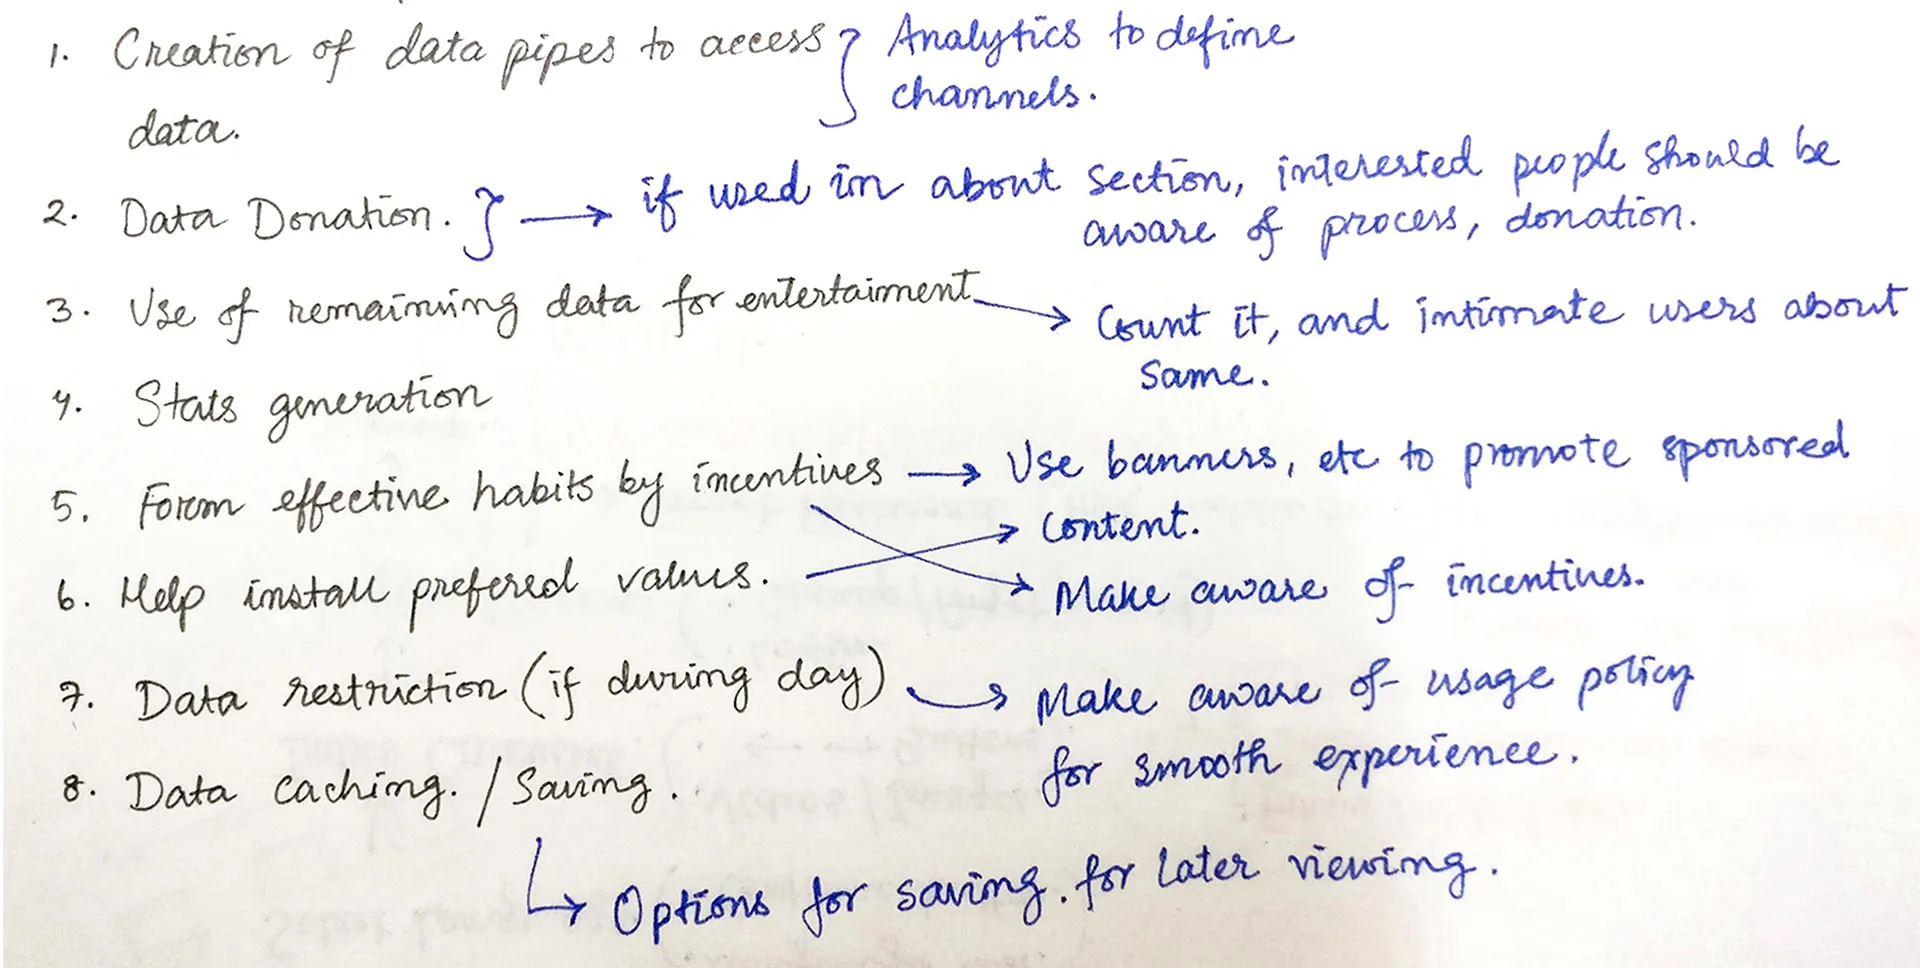 1. Creation of data pipes to access } Analytics to define
data. channels.
2. Data Donation. } → if used in about section, interested people should be
aware of process, donation.
3. Use of remaining data for entertaiment → Count it, and intimate users about
same.
4. Stats generation
5. Form effective habits by incentives → Use banners, etc to promote sponsored
→ Content.
6. Help install prefered values. → Make aware of incentives.
7. Data restriction (if during day) → Make aware of usage policy
for smooth experience.
8. Data caching. / Saving.
→ Options for saving. for later viewing.